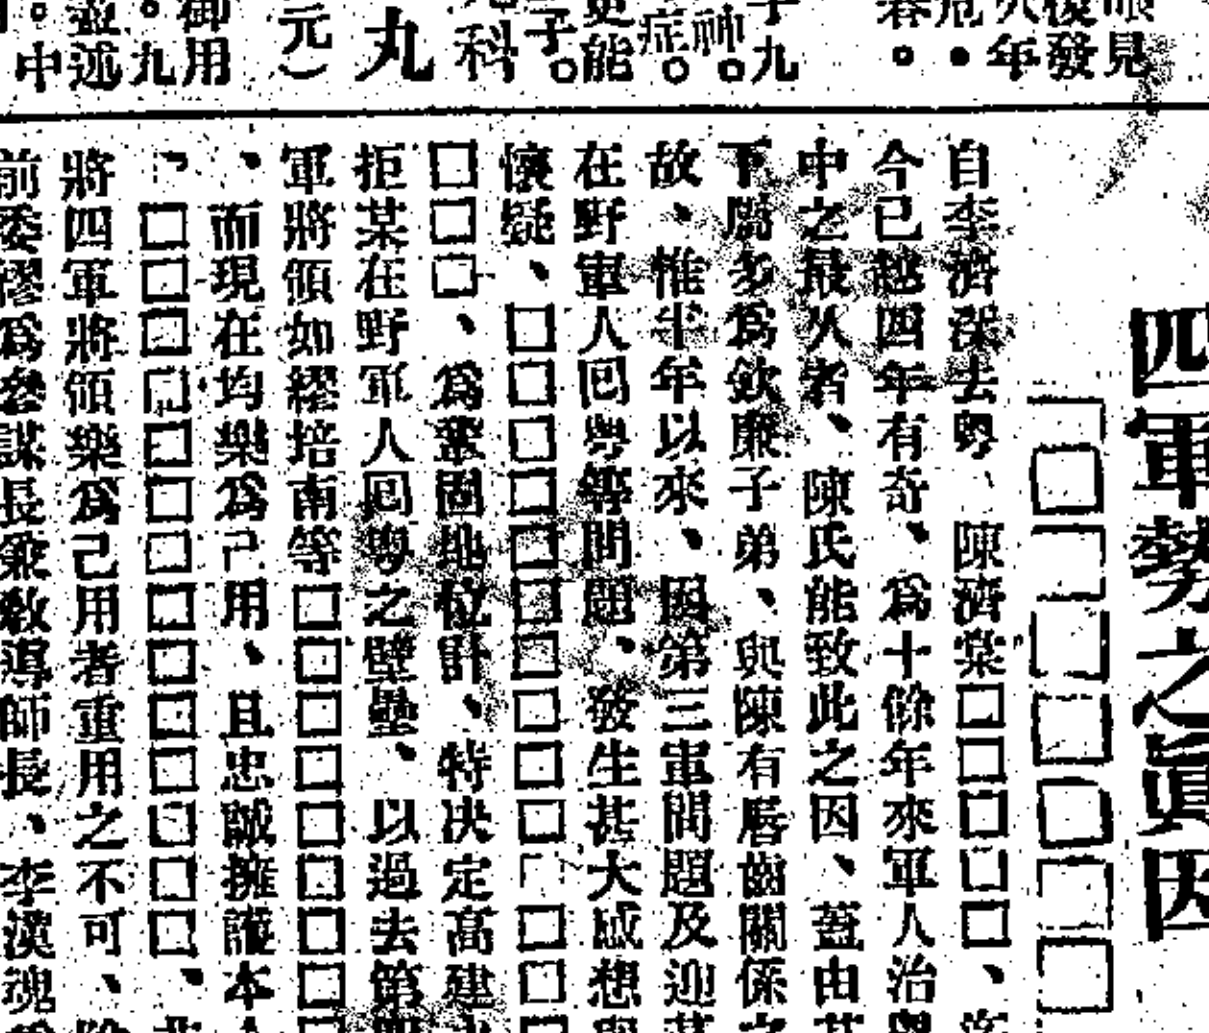 眼見
後發
年
危・
。
子九
神。
症。
更能
子。
科
丸
元）
御用
。九
述
中
四軍勢之眞因
□□□□□□□□
自李濟深去粤、陳濟棠□□□□□、
今已越四年有奇、爲十餘年來軍人治粤
中之最久者、陳氏能致此之因、蓋由其
下屬多爲欽廉子弟、與陳有唇齒關係
故、惟半年以來、因第三軍問題及迎某
在野軍人囘粤等問題、發生甚大感想與
懷疑、□□□□□□□□□□□□□□
□□□、爲鞏固地位計、特决定高建
拒某在野軍人囘粤之壁壘、以過去第四
軍將領如繆培南等□□□□□□□□□
、而現在均樂爲己用、且忠誠擁護本人
、□□□□□□□□□□□□□□、
將四軍將領樂爲己用者重用之不可、除
前委繆爲參謀長兼敎導師長、李漢魂